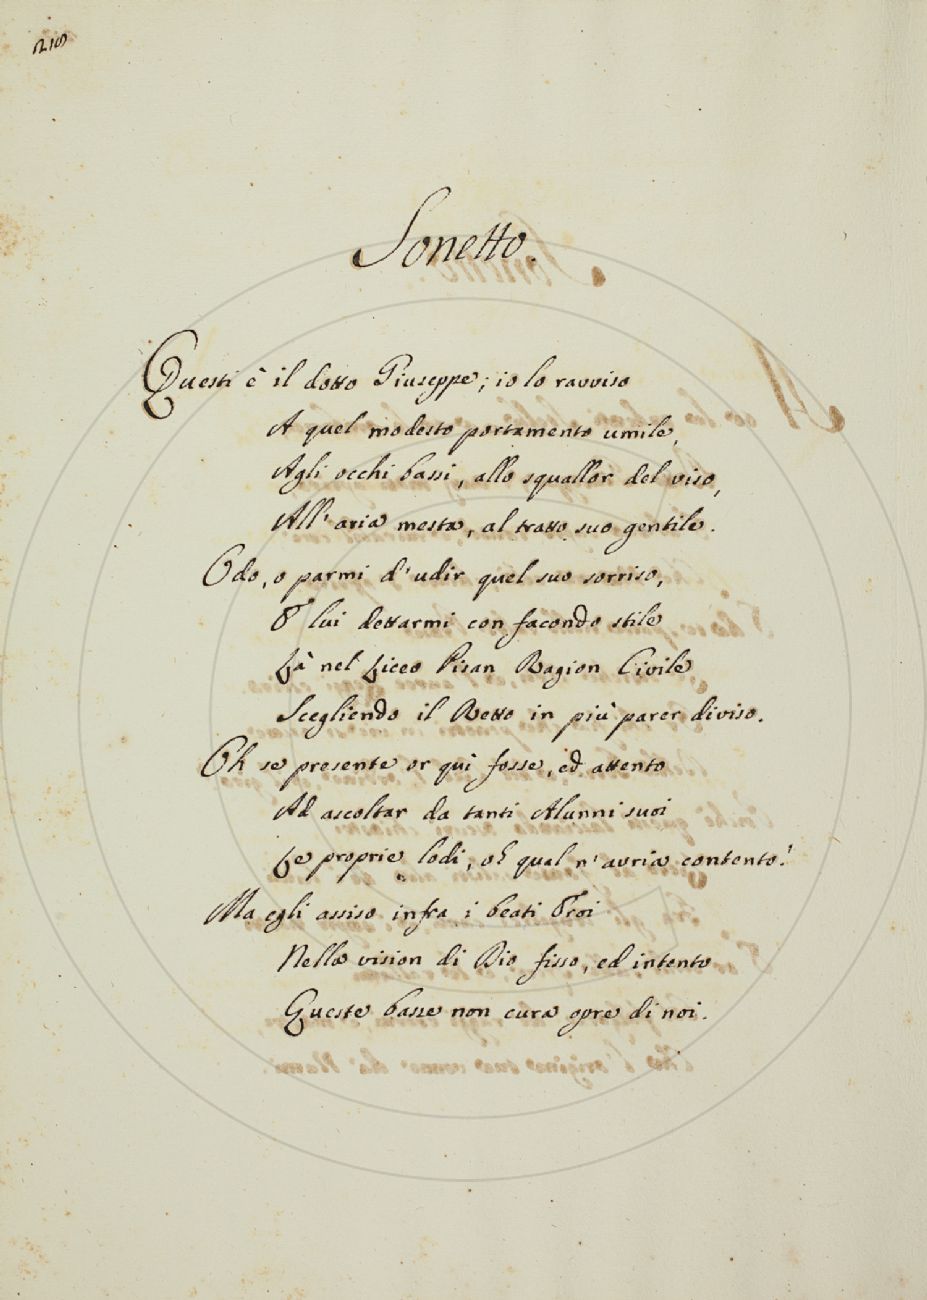 218
Sonetto.
Questi è il dotto Giuseppe; io lo ravviso
A quel modesto portamento umile,
Agli occhi bassi, allo squallor del viso,
All'aria mesta, al tratto suo gentile.
Odo, o parmi d'udir quel suo sorriso,
E lui dettarmi con facondo stile
Là nel Liceo Pisan Ragion Civile
Scegliendo il Retto in più parer diviso.
Oh se presente or quì fosse, ed attento
Ad ascoltar da tanti Alunni suoi
Le proprie lodi, oh qual n'avria contento!
Ma egli assiso infra i beati Eroi
Nella vision di Dio fisso, ed intento
Queste basse non cura opre di noi.